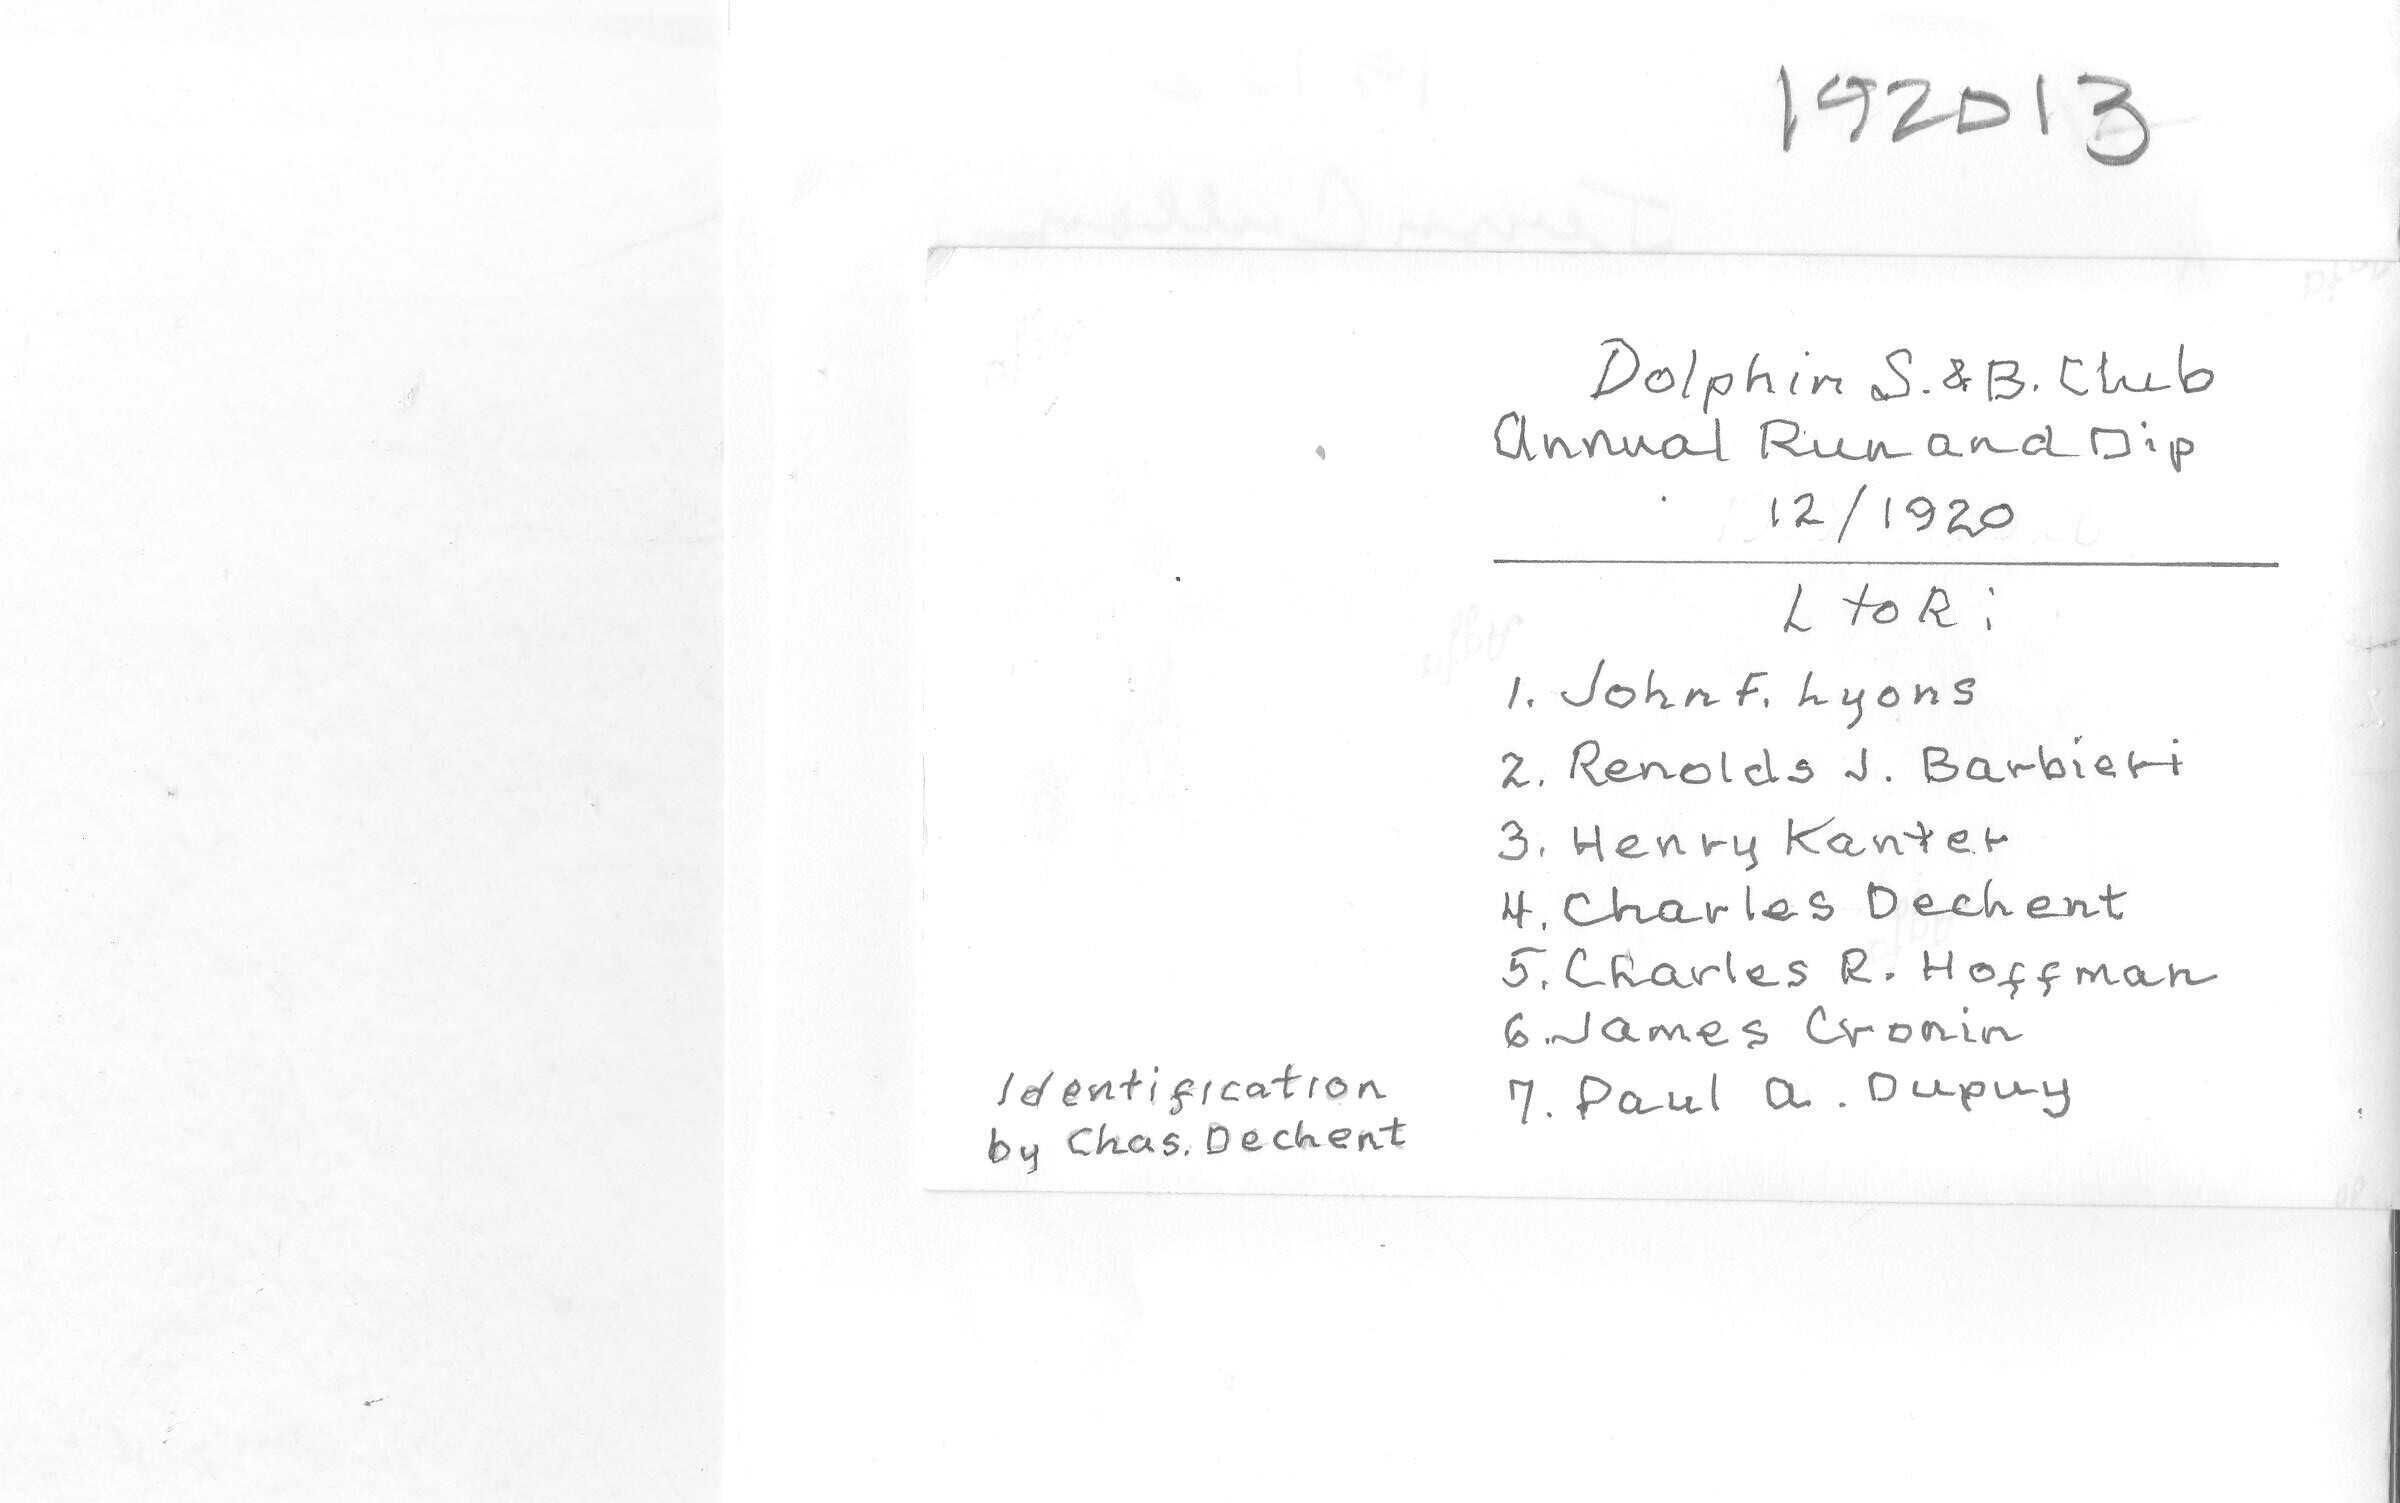 192013
Dolphin S. & B. Club
Annual Run and Dip
12/1920
L to R:
1. John F. Lyons
2. Renolds J. Barbieri
3. Henry Kanter
4. Charles Dechent
5. Charles R. Hoffman
6. James Cronin
7. Paul A. Dupuy
Identification
by Chas. Dechent